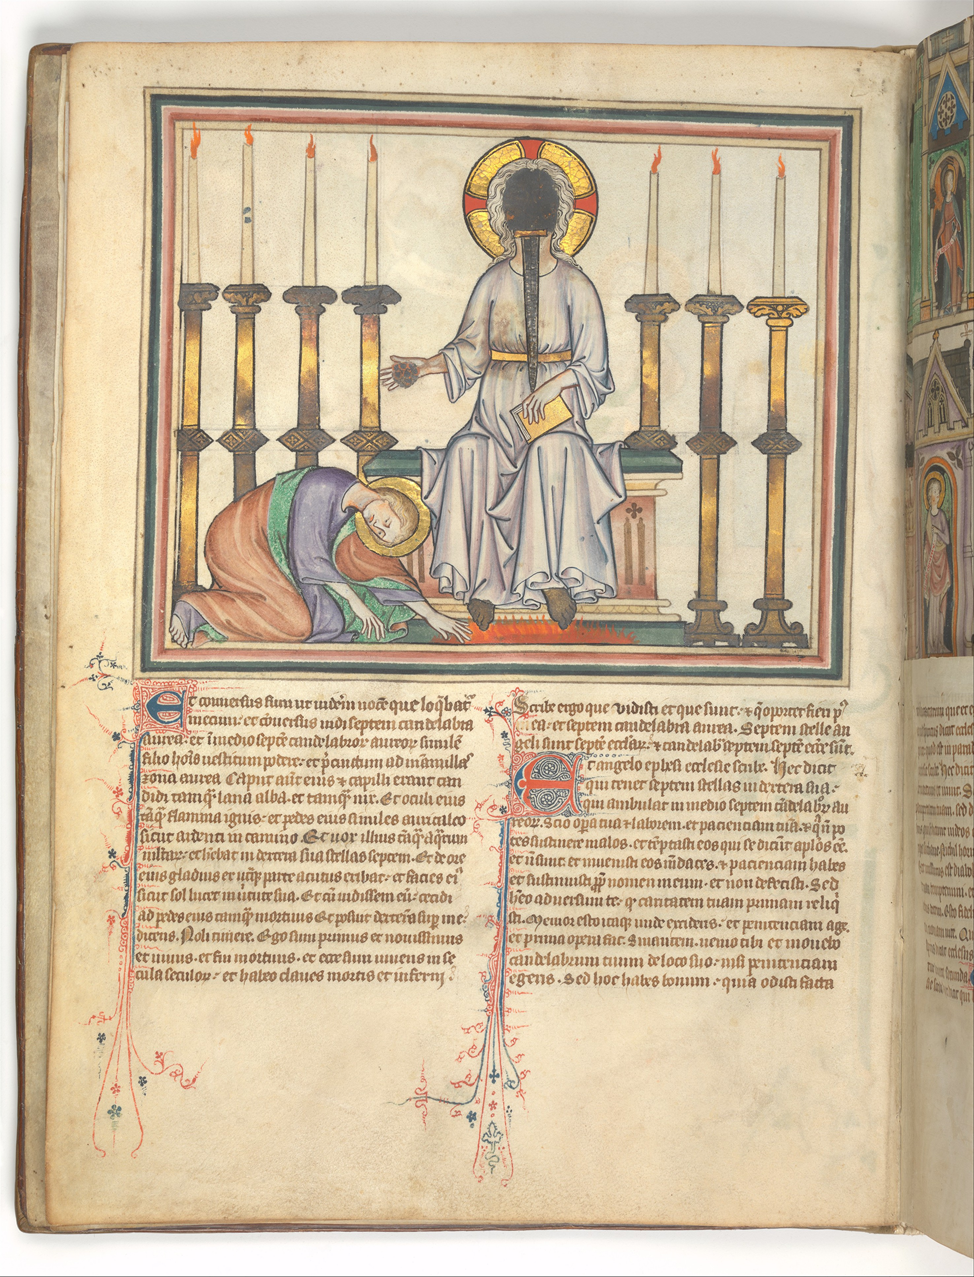 Et conuersus sum ut uiderẽ uocẽ que loq̃bat᷑
mecum· et cõuersus uidi septem candelabra
aurea· et ĩ medio septẽ candelabroꝝ aureoꝝ similẽ
filio hoĩs uestitum podere· et p̃cinctum ad mamillas
zona aurea Caput aũt eius ⁊ capilli erant can
didi tamq̃ lana alba· et tamq̃ nix· Et oculi eius
tãq̃ flamma ignis· et pedes eius similes auricalco
sicut ardenti in camino· Et uox illius tãq̃ aq̃rum
multaꝝ· et hẽbat in dextera sua stellas septem· Et de ore
eius gladius ex utq̃ parte acutus exibat· et facies eiꝰ
sicut sol lucet in uirtute sua· Et cũ uidissem eũ· cecidi
ad pedes eius tamq̃ mortuus Et posuit dexterã suã sup̱ me·
dicens· Noli timere· Ego sum primus et nouissimus
et uiuus· et fui mortuus· et ecce sum uiuens in se
cula seculoꝝ· et habeo claues mortis et inferni·
Scribe ergo que vidisti et que sunt· ⁊ q̃ oportet fieri pꝰ
ea· et septem candelabra aurea· Septem stelle an
geli sunt septẽ eccl̃iaꝝ· ⁊ candelab̃ septem septẽ ecc̃e sũt·
Et angelo ephesi ecclesie scribe· Hec dicit
qui tenet septem stellas in dextera sua·
qui ambulat in medio septem cãdelabꝝ au
reoꝝ· Scio oꝑa tua ⁊ laborem· et pacienciam tuã· ⁊ q̃ nõ po
tes sustinere malos· et tẽptasti eos qui se dicũt apl̃os eẽ·
et nõ sunt et inuenisti eos mẽdaces· ⁊ pacienciam habes
et sustinuisti ꝓpt̃ nomen meum· et non defecisti· Sed
hẽo aduersum te· ꝙ caritatem tuam primam reliq̃
sti· Memor esto itaq̃ unde excideris· et penitenciam age·
et prima opera fac· Sin autem· uenio tibi et mouebo
candelabrum tuum de loco suo· nisi penitenciam
egeris· Sed hoc habes bonum· quia odisti facta